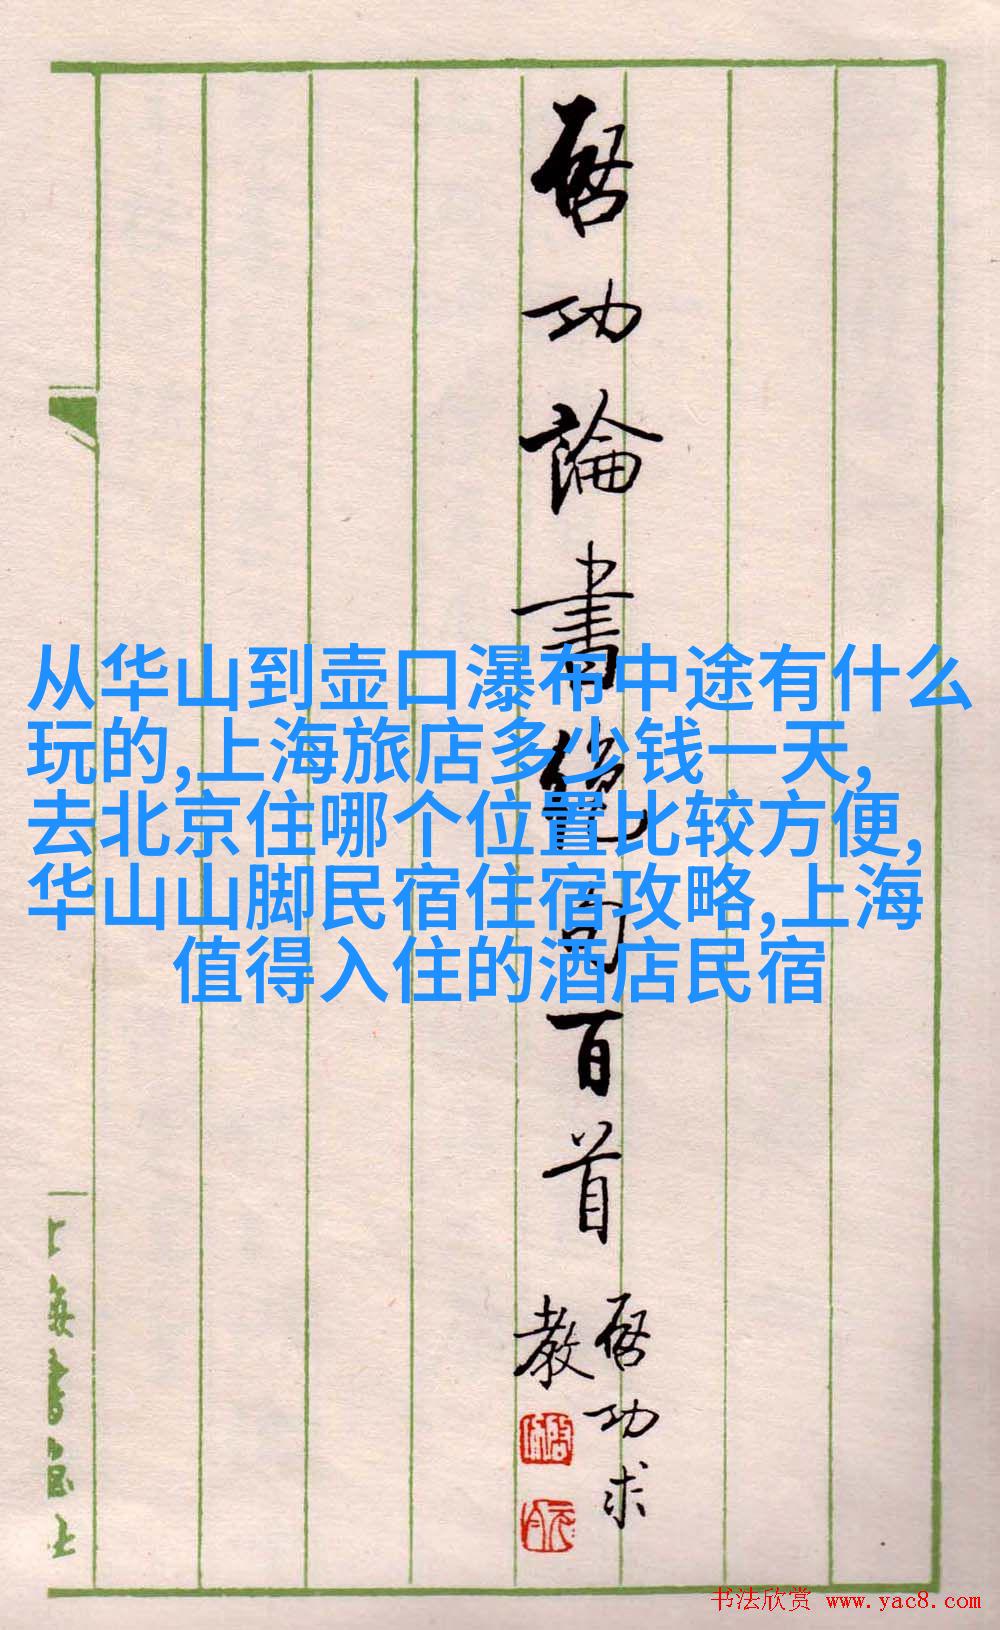 启功論書絶句百首
启功求
教
从华山到壶口瀑布中途有什么
玩的,上海旅店多少钱一天,
去北京住哪个位置比较方便,
华山山脚民宿住宿攻略,上海
值得入住的酒店民宿
上海書画社
书法欣赏 www.yac8.com